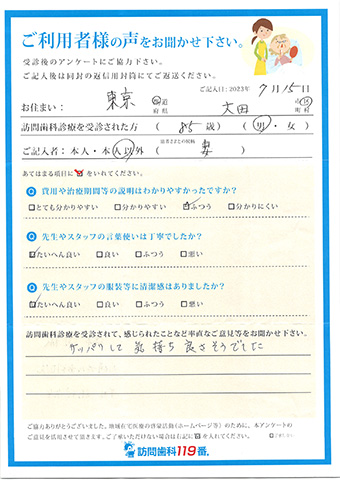 ご利用者様の声をお聞かせ下さい。
受診後のアンケートにご協力下さい。
ご記入後は同封の返信用封筒にてご返送ください。
ご記入日：2023年 7月15日
お住まい： 東京 都道府県 大田 市区町村
訪問歯科診療を受診された方 （ 85 歳） （ 男 ・ 女 ）
ご記入者：本人・本人以外 （ 妻 ）
あてはまる項目に☑を入れてください。
Q 費用や治療期間等の説明はわかりやすかったですか？
□とても分かりやすい □分かりやすい ☑ふつう □分かりにくい
Q 先生やスタッフの言葉使いは丁寧でしたか？
☑たいへん良い □良い □ふつう □悪い
Q 先生やスタッフの服装等に清潔感はありましたか？
☑たいへん良い □良い □ふつう □悪い
訪問歯科診療を受診されて、感じられたことなど率直なご意見等をお聞かせ下さい。
サッパリして気持ち良さそうでした
ご協力ありがとうございました。地域在宅医療の啓蒙活動（ホームページ等）のために、本アンケートの
ご意見を活用させて頂きます。ご了承いただけない場合は右記に☑を入れてください。
訪問歯科119番